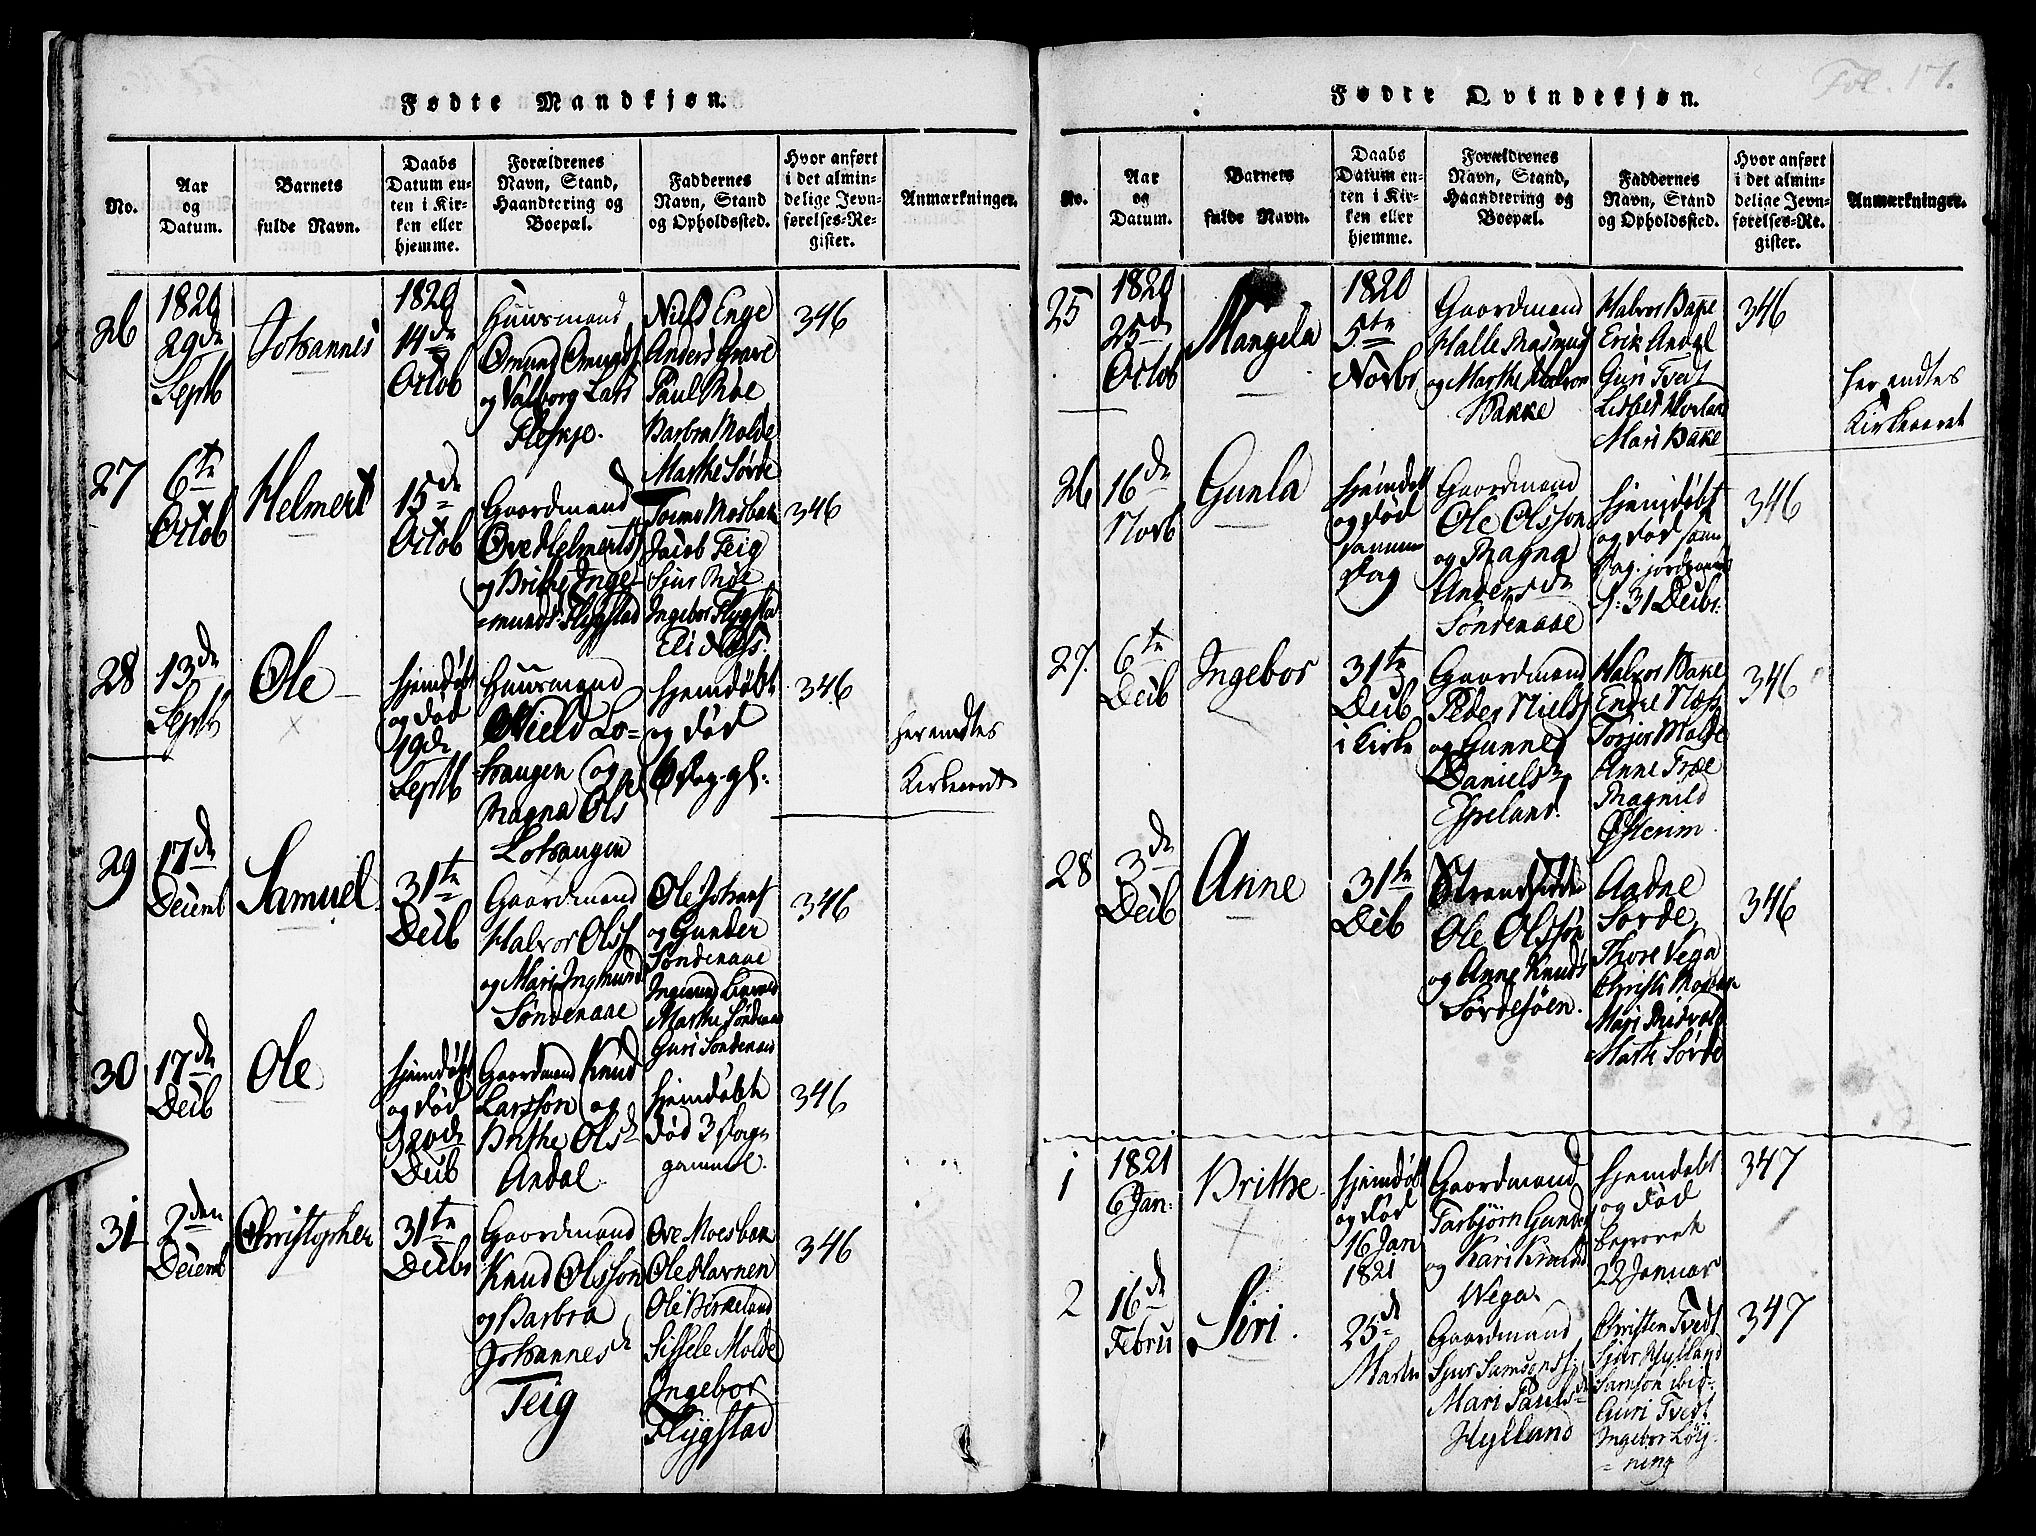 Fødte Mandkjøn.
No.
Aar
og
Datum.
Barnets
fulde Navn.
Daabs
Datum en-
ten i Kir-
ken eller
hjemme.
Forældrenes
Navn, Stand,
Haandtering og
Boepæl.
Faddernes
Navn, Stand
og Opholdssted.
Hvor anført
i det almin-
delige Jevn-
førelses-Re-
gister.
Anmærkninger.
26
1820
29de
Septb
Johannes
1820
14de
Octob
Huusmand
Omund Omunds
og Valborg Lars
Fleskje.
Niels Enge
Anders Grave
Paul Røe
Barbra Molde
Marthe Sørde
346
27
6te
Octob
Helmert
15de
Octob
Gaardmand
Ove Helmerts
og Brithe Inge-
=munds Flygstad
Mosbak
Jacob Teig
Siur Røe
Ingebor Flygstad
Eli
346
28
13de
Septb
Ole
hjemdøbt
og død
19de
Septb
Huusmand
Nield Lo-
haugen og
Magna Ols
Lohaugen
hjemdøbt
og død
6 Dag gl.
346
her endtes
Kirkeaaret
29
17de
Decemb
Samuel
31te
Decb
Gaardmand
Halvor Ols
og Mari Ingmund
Søndenaae
Ole Johans
og Gunder
Søndenaae
Ingmund
Marthe Søndenaae
Guri Søndenaae
346
30
17de
Decb
Ole
hjemdøbt
og død
20de
Decb
Gaardmand Knud
Larsson og
Brithe Olsd
Andal
hjemdøbt
død 3 Dage
gammel.
346
31
2den
Decemb
Christopher
31te
Decbr
Gaardmand
Knud Olsson
og Barbra
Johannesd
Teig
Ove Moesbak
Ole Havnen
Ole Birkeland
Sissele Molde
Ingebor
Flygstad
346
Fol. 17.
Fødte Qvindekjøn.
No.
Aar
og
Datum.
Barnets
fulde Navn.
Daabs
Datum en-
ten i Kir-
ken eller
hjemme.
Forældrenes
Navn, Stand,
Haandtering og
Boepæl.
Faddernes
Navn, Stand
og Opholdssted.
Hvor anført
i det almin-
delige Jevn-
førelses-Re-
gister.
Anmærkninger.
25
1820
25de
Octob
Mangela
1820
5te
Novbr
Gaardmand
Halle Rasmus
og Marthe Halvor
Bakke
Halvor Bakke
Erik Andal
Guri Tvedt
Lisbet Hovland
Mari Bakke
346
her endtes
Kirkeaaret
26
16de
Novb
Gunla
hjemdøbt
og død
samme
Dag
Gaardmand
Ole Olsson
og Magna
Andersdr
Søndenaae
hjemdøbt
og død samme
Dag. jord
d: 31 Decbr.
346
27.
6te
Decb
Ingebor
31te
Decb
i Kirke
Gaardmand
Peder Niels
og Gunnel
Daniels
Espeland.
Halvor Bakke
Endre Næss
Torjer Molde
Anne Træe
Ragnild
Østerim.
346
28
3de
Decb
Anne
31te
Decb
Strandsidder
Ole Olsson
og Anne Knuds
Sørdesøen.
Aadne
Sørde
Thore Vega
Christi
Mari
Marthe Sørde
346
1
1821
6 Jan.
Brithe
hjemdøbt
og død
16 Jan
1821
Gaardmand
Tarbjørn Gunder
og Kari
Wega
hjemdøbt
og død
begravet
22 Januar
347
2
16de
Febru
Siri.
25de
Martii
Gaardmand
Sjur Samsons
Mari Pauls
Hylland
Christen Tvedt
Sjur Hylland
Samson ibid.
Guri Tvedt
Ingebor Løy-
=ning
347